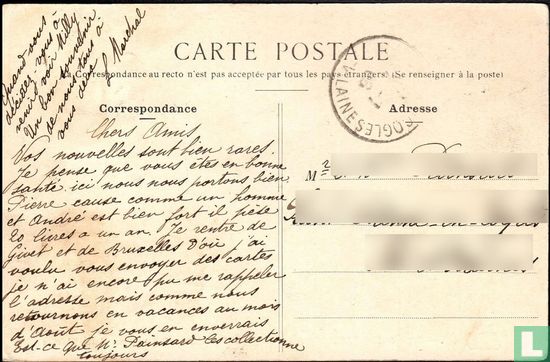 CARTE POSTALE
La Correspondance au recto n'est pas acceptée par tous les pays étrangers. (Se renseigner à la poste)
Correspondance
Adresse
Chers Amis
Vos nouvelles sont bien rares.
Je pense que vous êtes en bonne
santé ici nous nous portons bien
Pierre cause comme un homme
et André est bien fort il pèse
20 livres a un an. Je rentre de
Givet et de Bruxelles D'où j'ai
voulu vous envoyer des cartes
je n'ai encore pu me rappeler
l'adresse mais comme nous
retournons en vacances au mois
d'Août je vous en enverrais
Est-ce que Mr Painsard les collectionne
toujours
Quand vous
décidez-vous à
venir voir Milly
Un bon souvenir
de nous tous à
vous deux
L Marchal
COGLES
VILAINE
Mr